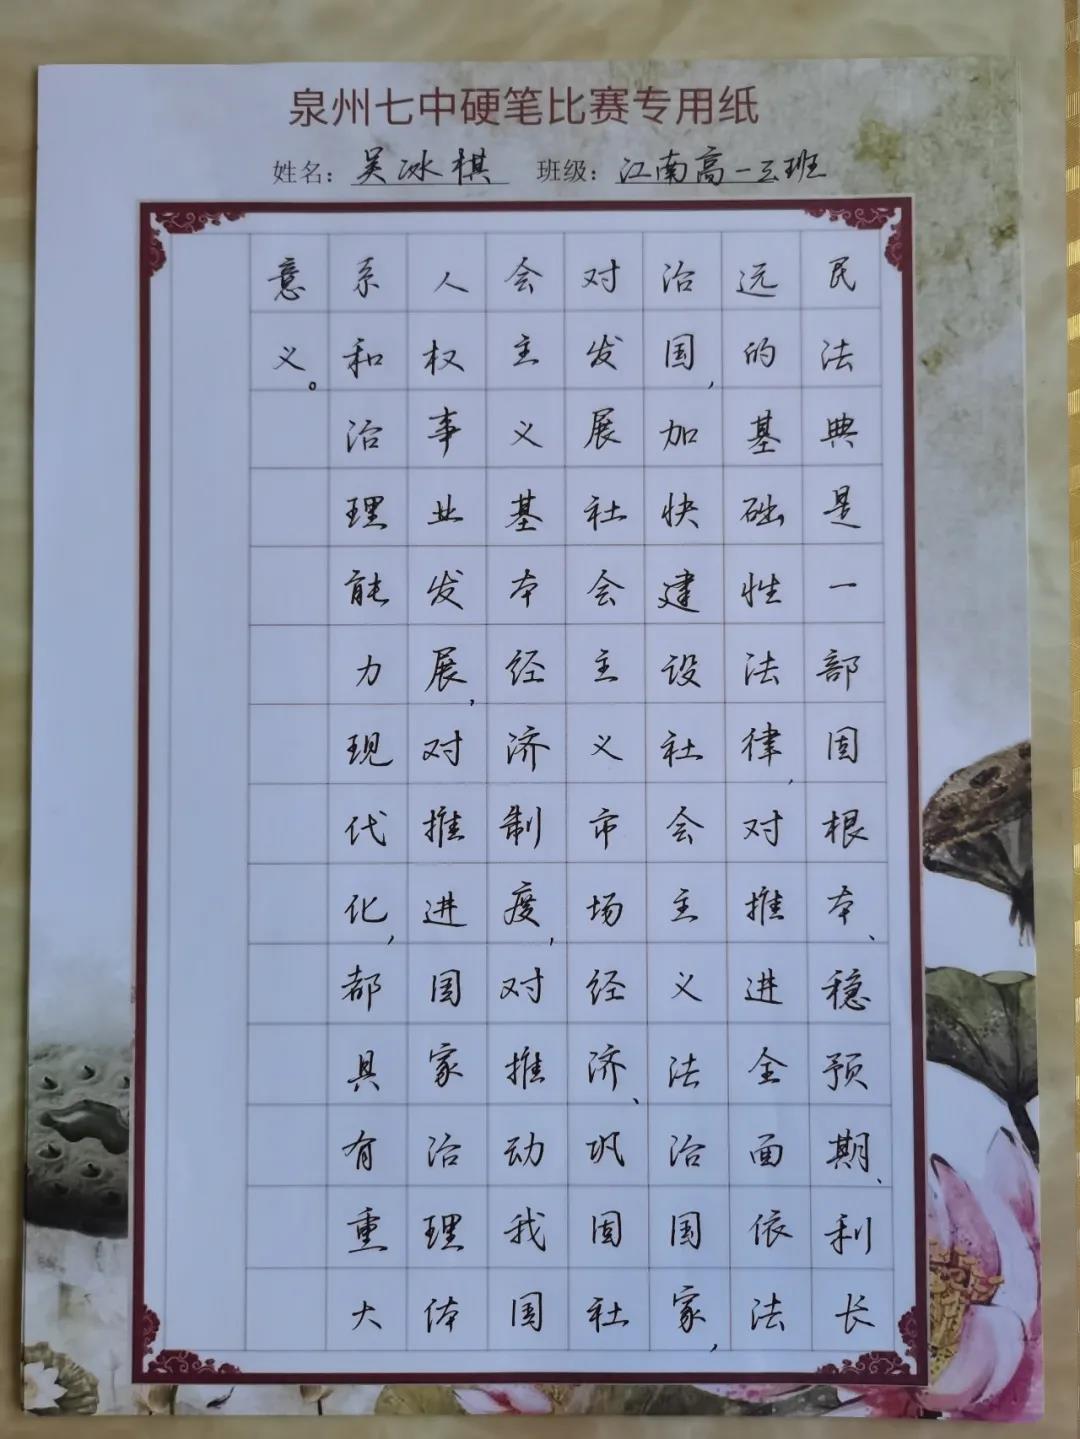 泉州七中硬笔比赛专用纸
姓名：吴冰棋 班级：江南高一3班
民法典是一部固根本、稳预期、利长
远的基础性法律，对推进全面依法
治国，加快建设社会主义法治国家，
对发展社会主义市场经济、巩固社
会主义基本经济制度，对推动我国
人权事业发展，对推进国家治理体
系和治理能力现代化，都具有重大
意义。